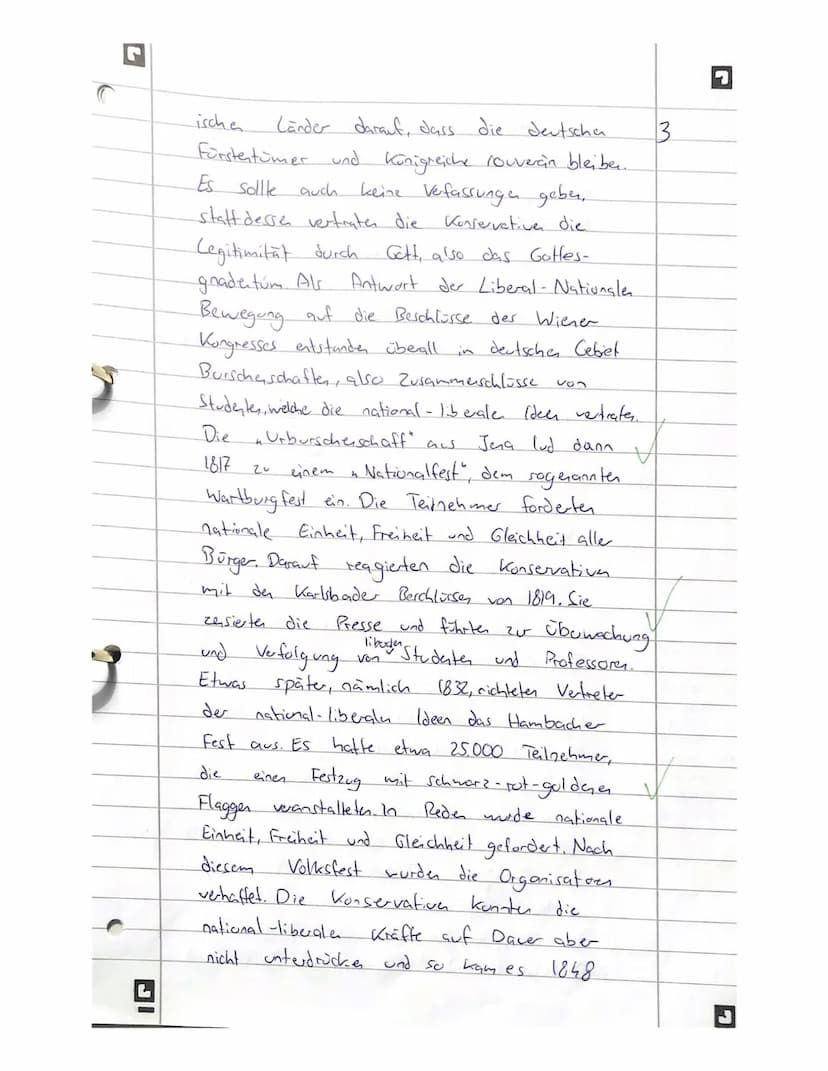 ischen Länder darauf, dass die deutschen 3
Fürstentümer und Königreiche souverän bleiben.
Es sollte auch keine Verfassungen geben,
stattdessen vertraten die Konservativen die
Legitimität durch Gott, also das Gottes-
gnadentum. Als Antwort der Liberal-Nationalen
Bewegung auf die Beschlüsse des Wiener
Kongresses entstanden überall in deutschen Gebiet
Burschenschaften, also Zusammenschlüsse von
Studenten, welche die national-liberale Ideen vertraten.
Die „Urburschenschaft" aus Jena lud dann
1817 zu einem „Nationalfest", dem sogenannten
Wartburgfest ein. Die Teilnehmer forderten
nationale Einheit, Freiheit und Gleichheit aller
Bürger. Darauf reagierten die Konservativen
mit den Karlsbader Beschlüssen von 1819. Sie
zensierten die Presse und führten zur Überwachung
und Verfolgung von liberalen Studenten und Professoren.
Etwas später, nämlich 1832, richteten Vertreter
der national-liberalen Ideen das Hambacher
Fest aus. Es hatte etwa 25.000 Teilnehmer,
die einen Festzug mit schwarz-rot-goldenen
Flaggen veranstalteten. In Reden wurde nationale
Einheit, Freiheit und Gleichheit gefordert. Nach
diesem Volksfest wurden die Organisatoren
verhaftet. Die Konservativen konnten die
national-liberalen Kräfte auf Dauer aber
nicht unterdrücken und so kam es 1848